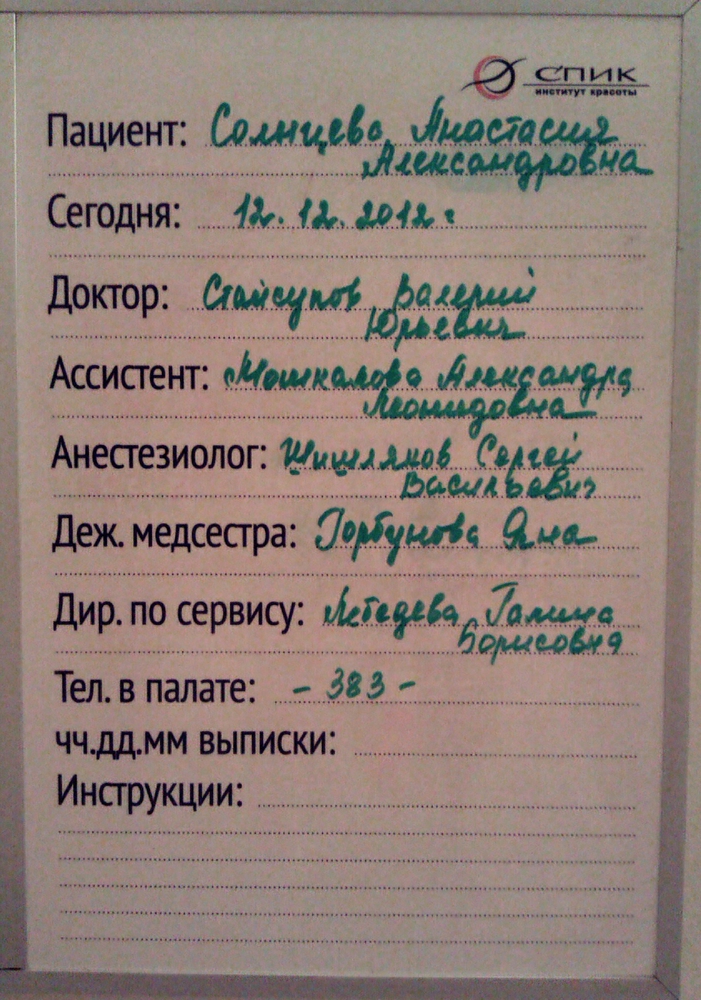 СПИК
институт красоты
Пациент: Солнцева Анастасия
Александровна
Сегодня: 12.12.2012г
Доктор: Стайсупов Валерий
Юрьевич
Ассистент: Мошкалова Александра
Леонидовна
Анестезиолог: Шишляков Сергей
Васильевич
Деж. медсестра: Горбунова Яна
Дир. по сервису: Лебедева Галина
Борисовна
Тел. в палате: - 383 -
чч.дд.мм выписки:
Инструкции: